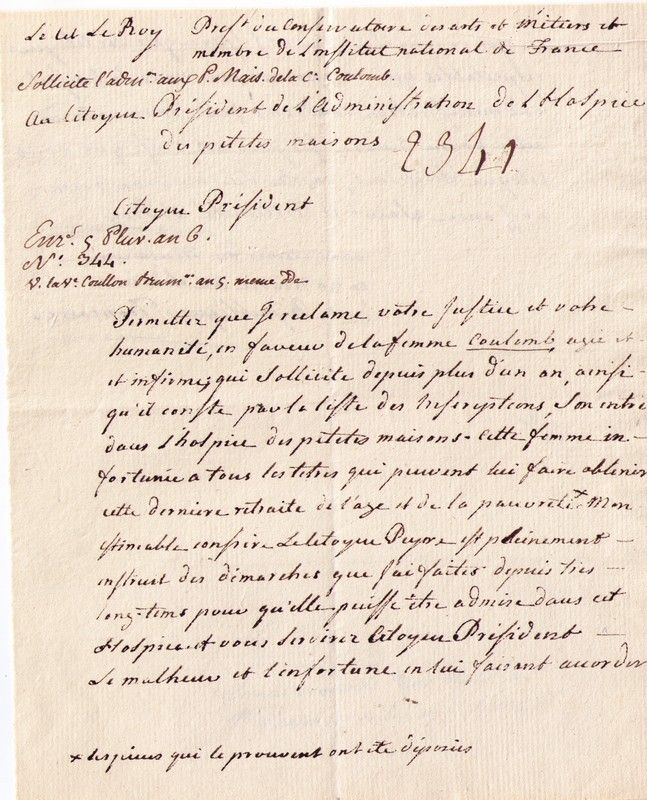 Le Cit Le Roy Prest du Conservatoire des arts et métiers et
membre de l'institut national de France
Sollicite l'adm.on aux P. Mais. de la Ce Coulomb.
Au Citoyen Président de l'Administration de l'Hospice
des petites maisons 2341
Citoyen Président
Enré. 5 Pluv. an 6.
N°. 344.
V. la Ve Coullon an 5. meme
Permettez que Je reclame votre Justice et votre
humanité, en faveur de la femme Coulomb, agée et
et infirme, qui Sollicite depuis plus d'un an, ainsi
qu'il conste par la liste des Inscriptions, Son entré
dans l'hospice des petites maisons. Cette femme in-
fortunée a tous les titres qui peuvent lui faire obtenir
cette derniere retraite de l'age et de la pauvreté.x Mon
estimable confrere Le Citoyen Peyre est pleinement
instruit des démarches que J'ai faites depuis tres
long-tems pour qu'elle puisse être admise dans cet
Hospice et vous Servirez Citoyen Président
Le malheur et l'infortune en lui faisant accorder
x les pieces qui le prouvent ont été déposées